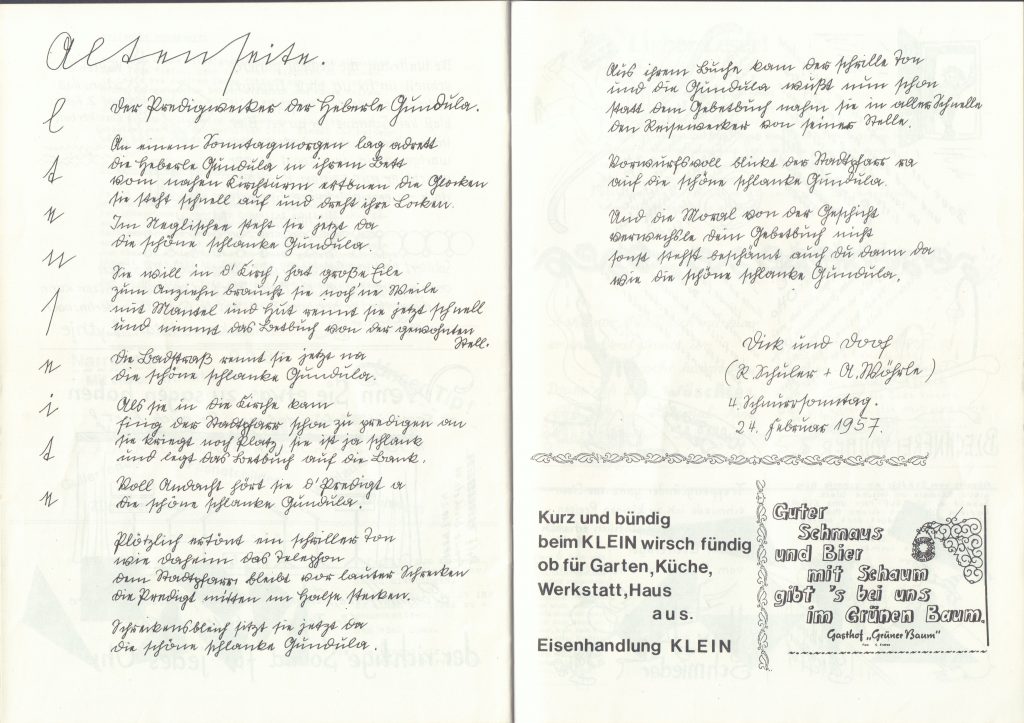 Altenseite.
Altenseite
Der Predigtwecker der Heberle Gundula.
An einem Sonntagmorgen lag adrett
die Heberle Gundula in ihrem Bett
vom nahen Kirchturm ertönen die Glocken
sie steht schnell auf und dreht ihre Locken.
Im Neglischee steht sie jetzt da
die schöne schlanke Gundula.
Sie will in d' Kirch, hat große Eile
zum Anziehn braucht sie noch 'ne Weile
mit Mantel und Hut rennt sie jetzt schnell
und nimmt das Betbuch von der gewohnten
Stell.
Die Badstraß rennt sie jetzt na
die schöne schlanke Gundula.
Als sie in die Kirche kam
fing der Stadtpfarr schon zu predigen an
sie kriegt noch Platz, sie ist ja schlank
und legt das Betbuch auf die Bank.
Voll Andacht hört sie d' Predigt a
die schöne schlanke Gundula.
Plötzlich ertönt ein schriller Ton
wie daheim das Telephon
dem Stadtpfarr bleibt vor lauter Schrecken
die Predigt mitten im Halse stecken.
Schreckensbleich sitzt sie jetzt da
die schöne schlanke Gundula.
Aus ihrem Buche kam der schrille Ton
und die Gundula wußt nun schon
statt dem Gebetbuch nahm sie in aller Schnelle
den Reisewecker von seiner Stelle.
Vorwurfsvoll blickt der Stadtpfarr ra
auf die schöne schlanke Gundula.
Und die Moral von der Geschicht
verwechsle dein Gebetbuch nicht
sonst stehst beschämt auch du dann da
wie die schöne schlanke Gundula.
Dick und Doof
(R. Schüler + A. Wöhrle)
4. Schnurrsonntag.
24. Februar 1957.
Kurz und bündig
beim KLEIN wirsch fündig
ob für Garten, Küche,
Werkstatt, Haus
aus.
Eisenhandlung KLEIN
Guter
Schmaus
und Bier
mit Schaum
gibt 's bei uns
im Grünen Baum.
Gasthof „Grüner Baum"